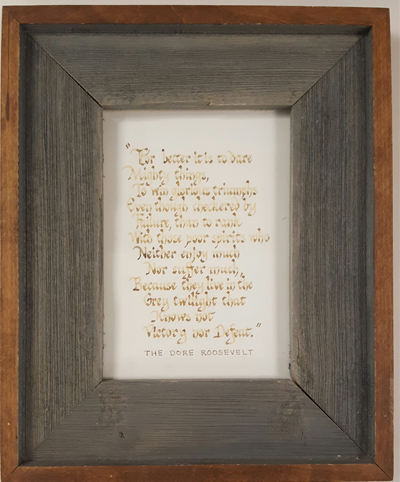 "Far better it is to dare
Mighty things,
To win glorious triumphs
Even though checkered by
Failure, than to rank
With those poor spirits who
Neither enjoy much
Nor suffer much,
Because they live in the
Grey twilight that
Knows not
Victory nor Defeat."
THE DORE ROOSEVELT